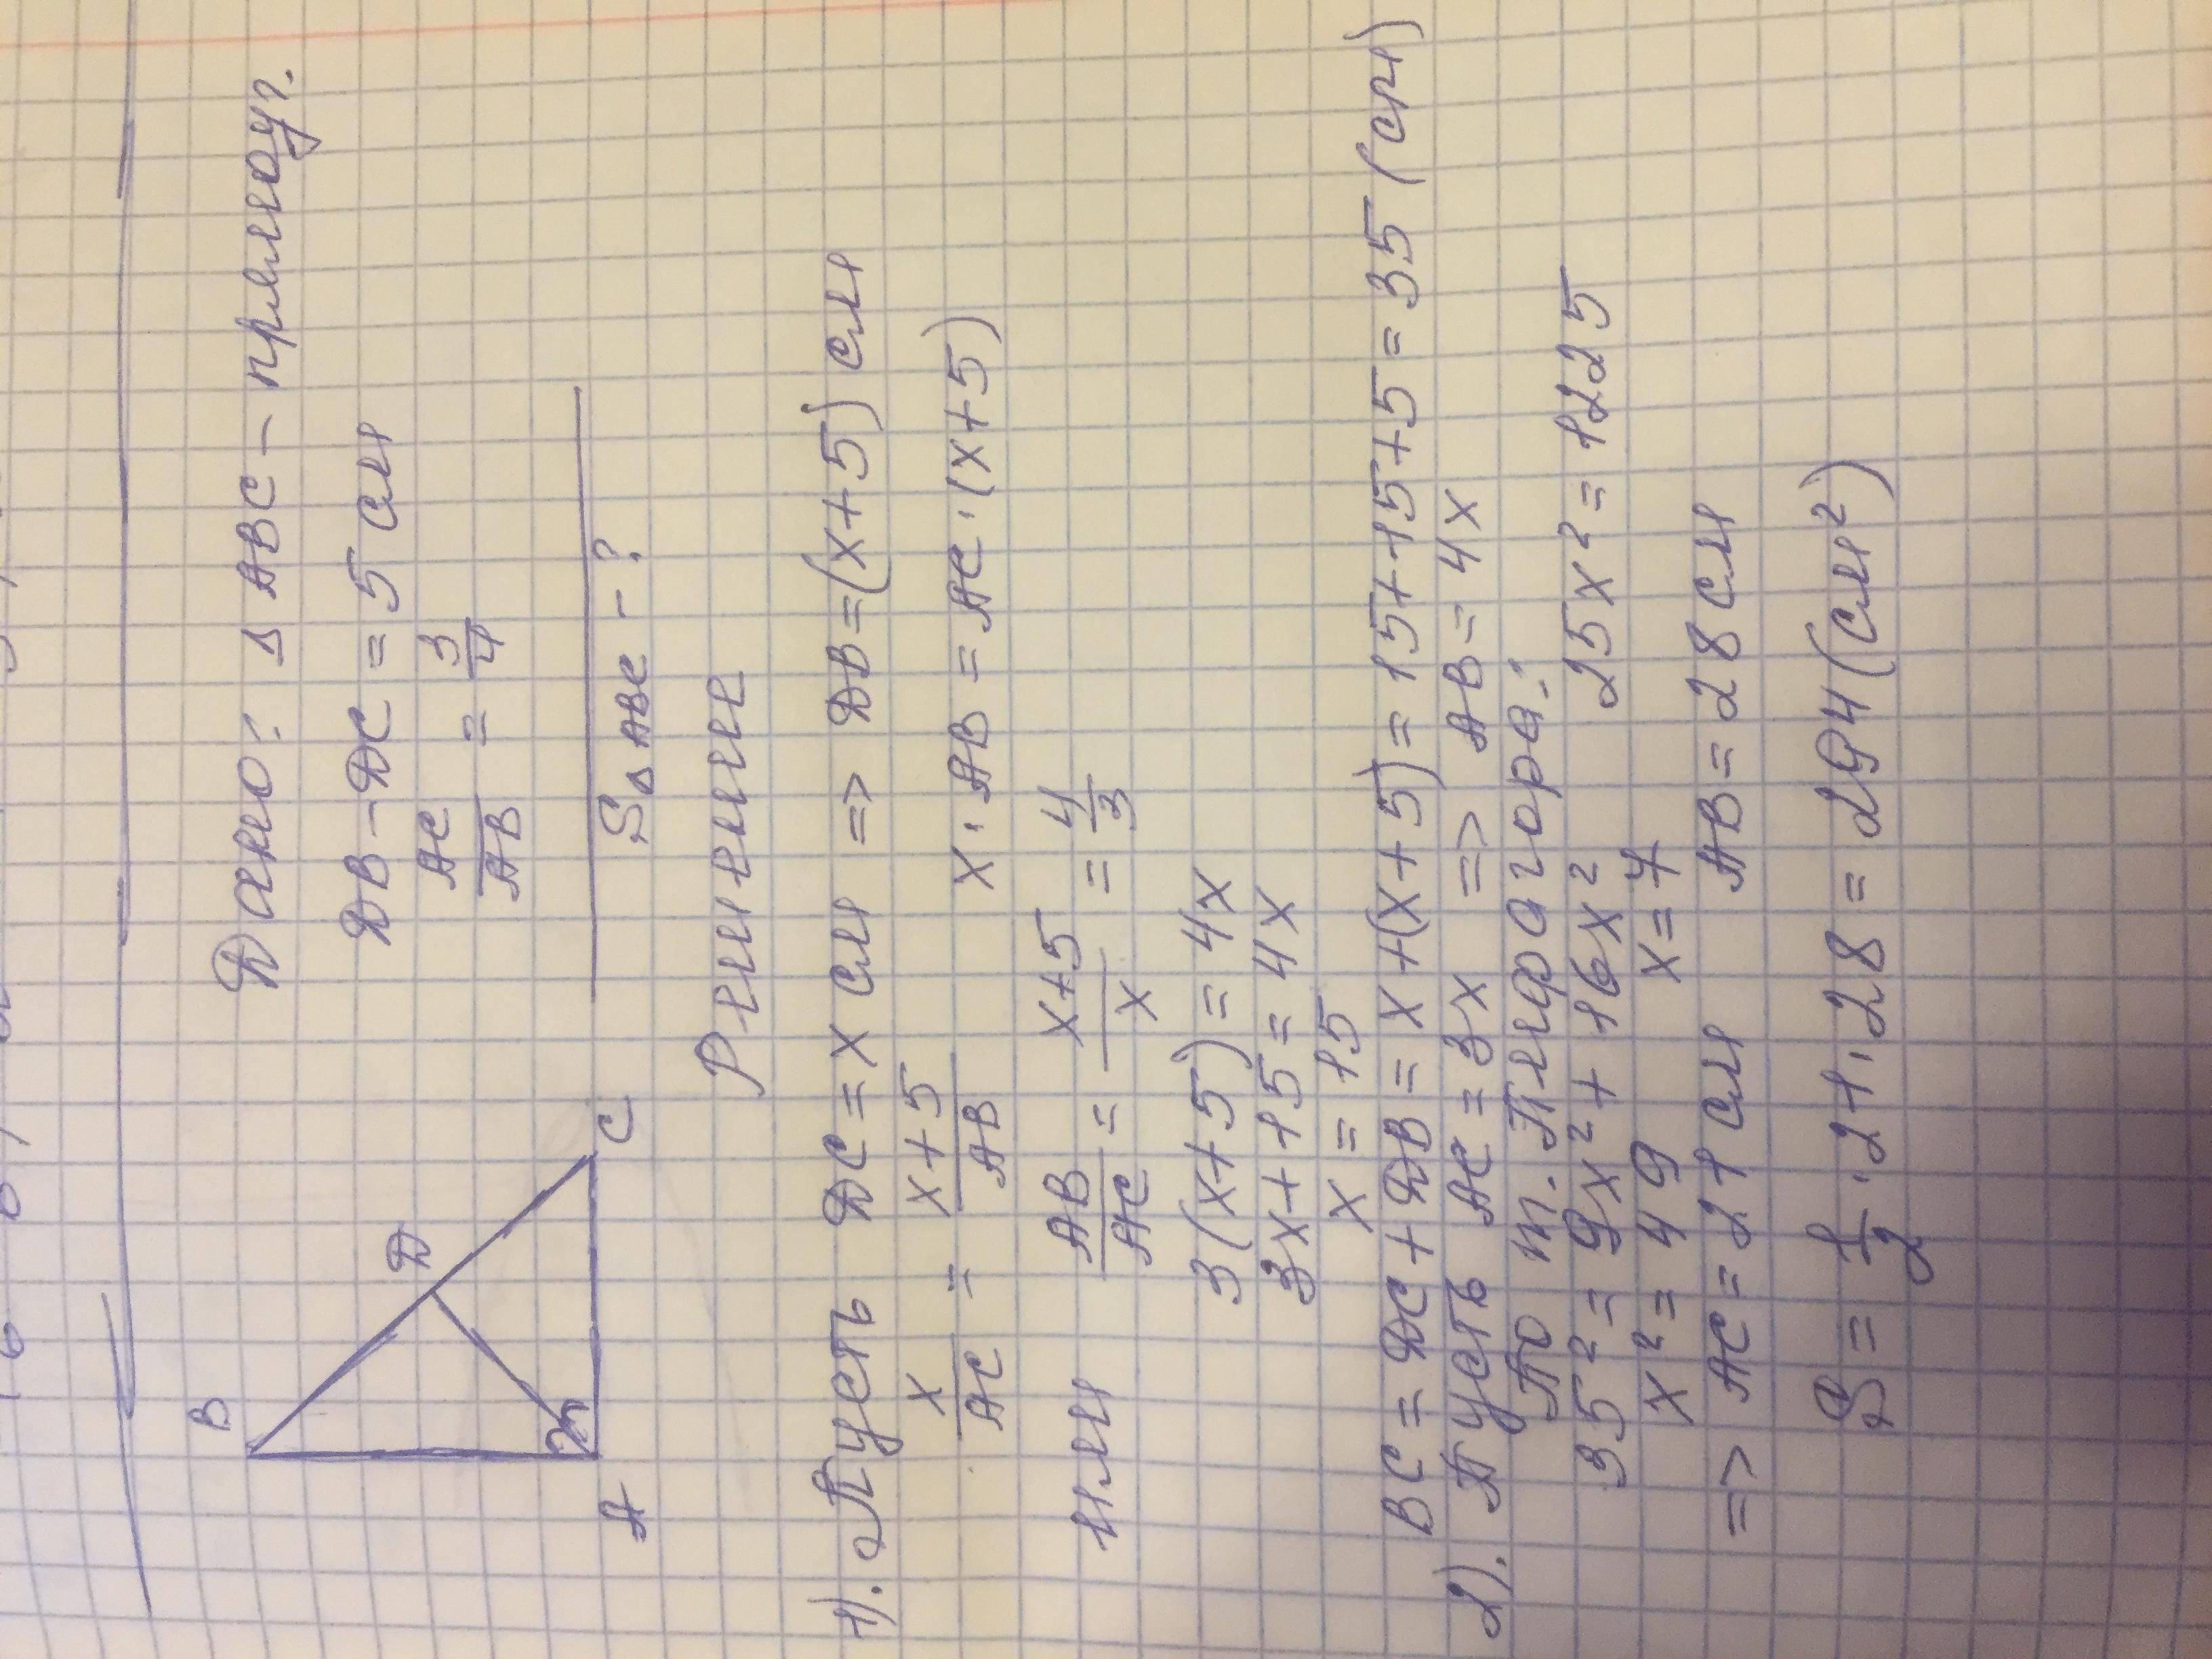 Дано: Δ ABC – прямоуг.
DB – DC = 5 см
AC/AB = 3/4
S Δ ABC – ?
B
D
A
C
Решение
1). Пусть DC = x см => DB = (x+5) см
x/AC = x+5/AB x · AB = AC · (x+5)
или AB/AC = x+5/x = 4/3
3(x+5) = 4x
3x+15 = 4x
x = 15
BC = DC + DB = x + (x+5) = 15+15+5 = 35 (см)
2). Пусть AC = 3x => AB = 4x
По т. Пифагора:
35² = 9x² + 16x² 25x² = 1225
x² = 49 x = 7
=> AC = 21 см AB = 28 см
S = 1/2 · 21 · 28 = 294 (см²)